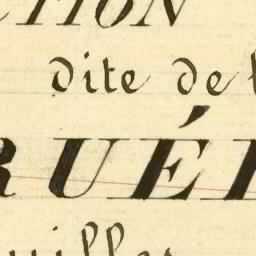 CTION
dite de l
RUÉE
uilles